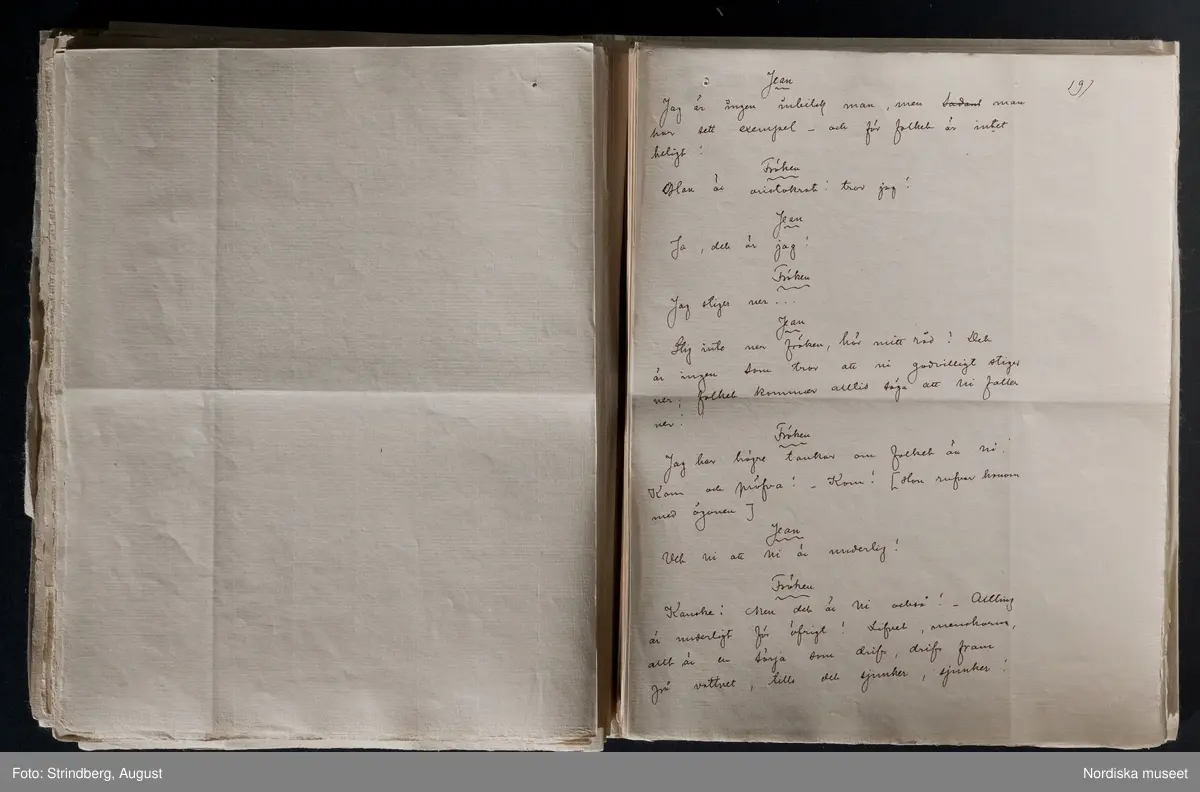 19)
Jean
Jag är ingen inbilsk man, men man
har sett exempel – och för folket är intet
heligt!
Fröken
Han är aristokrat! tror jag!
Jean
Ja, det är jag!
Fröken
Jag stiger ner...
Jean
Stig inte ner fröken, hör mitt råd! Det
är ingen som tror att ni godvilligt stiger
ner; folket kommer alltis säga att ni faller
ner!
Fröken
Jag har högre tankar om folket än ni!
Kom och pröfva! – Kom! [Hon rufvar honom
med ögonen]
Jean
Vet ni att ni är underlig!
Fröken
Kanske! Men det är ni också! – Allting
är underligt för öfrigt! Lifvet, menskorna,
allt är en sörja som drifs, drifs fram
på vattnet, tills det sjunker, sjunker!
Foto: Strindberg, August
Nordiska museet